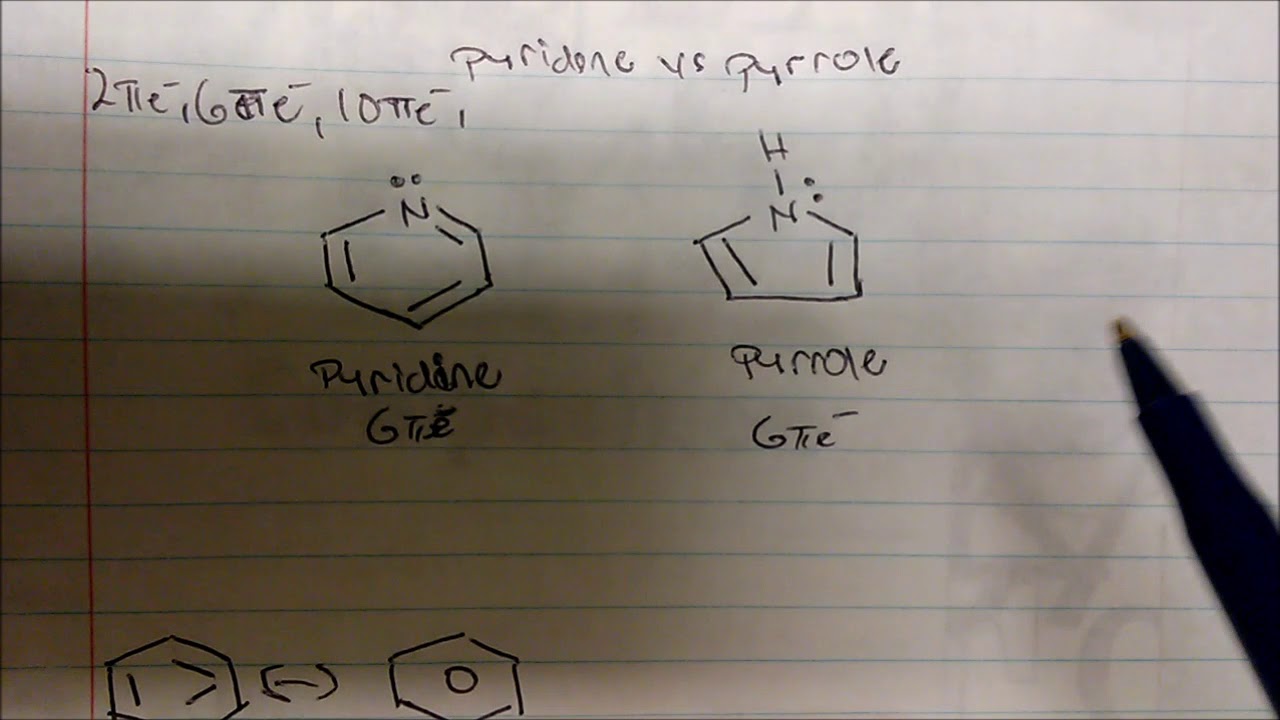 pyridine vs pyrrole
2πe⁻, 6πe⁻, 10πe⁻,
H
N
N
Pyridine
Pyrrole
6πe⁻
6πe⁻